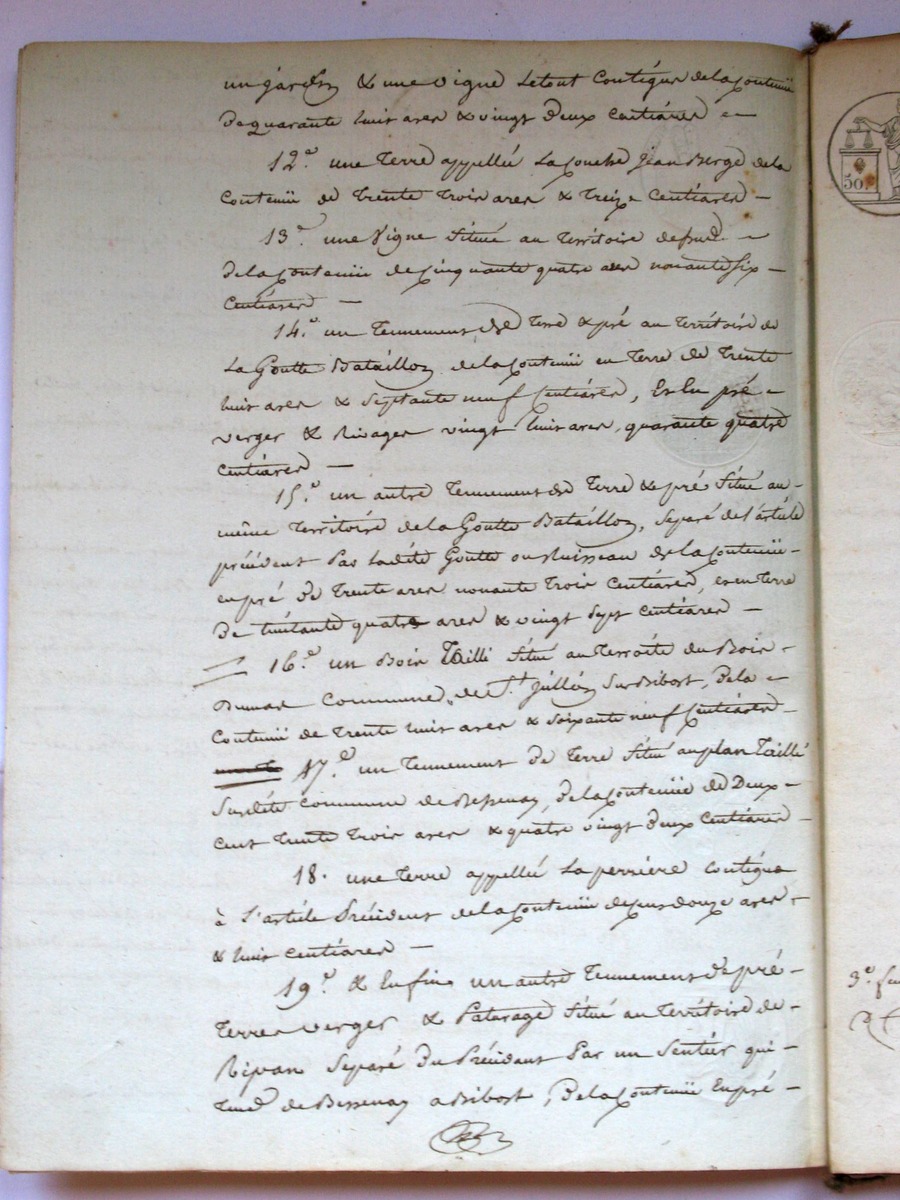 un jardin & une vigne le tout contigus de la contenüe
de quarante huit ares & vingt deux centiares —
12.° une Terre appellée La Couche jean Berge de la
contenüe de Trente Trois ares & Treize centiares —
13.° une Vigne Située au Territoire de —
de la contenüe de Cinquante quatre ares nonante Six —
Centiares —
14.° un Tennement de Terre & pré au Territoire de
La Goutte Bataillon de la contenüe en Terre de Trente
huit ares & Septante neuf Centiares, Et En pré —
verger & Rivages vingt huit ares, quarante quatre
centiares —
15.° un autre Tennement de Terre & pré Situé au —
même Territoire de la Goutte Bataillon, Separé de l'article
précédent Par Ladite Goutte ou Ruisseau de la contenüe —
en pré de Trente ares nonante Trois Centiares, et en Terre
De huitante quatre ares & vingt Sept Centiares —
16.° un Bois Taillé Situé au Terroite du Bois —
Dumas Commune de S.t Jullien Sur Bibost, de la —
Contenüe de Trente huit ares & Soixante neuf Centiares —
17.° un Tennement de Terre Situé au plan Taillé
Susdite Commune de Bessenay, de la Contenüe de Deux —
Cent Trente Trois ares & quatre vingt deux Centiares —
18. une Terre appellée La perriere Contigue
à L'article Précédent de la Contenüe de Cent douze ares —
& huit centiares —
19.° & Enfin un autre Tennement de pré —
Terre verger & Paturage Situé au Territoire de —
Ripan Separé du Précédent Par un Sentier qui —
Tend de Bessenay a Bibost, de la Contenüe En pré —
50
3.°